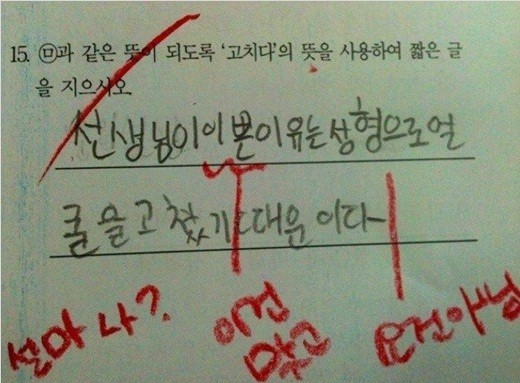 15. ㉤과 같은 뜻이 되도록 '고치다'의 뜻을 사용하여 짧은 글
을 지으시오
선생님이이쁜이유는성형으로얼
굴을고쳤기때문이다
설마 나? 이건 요건아님
맞고